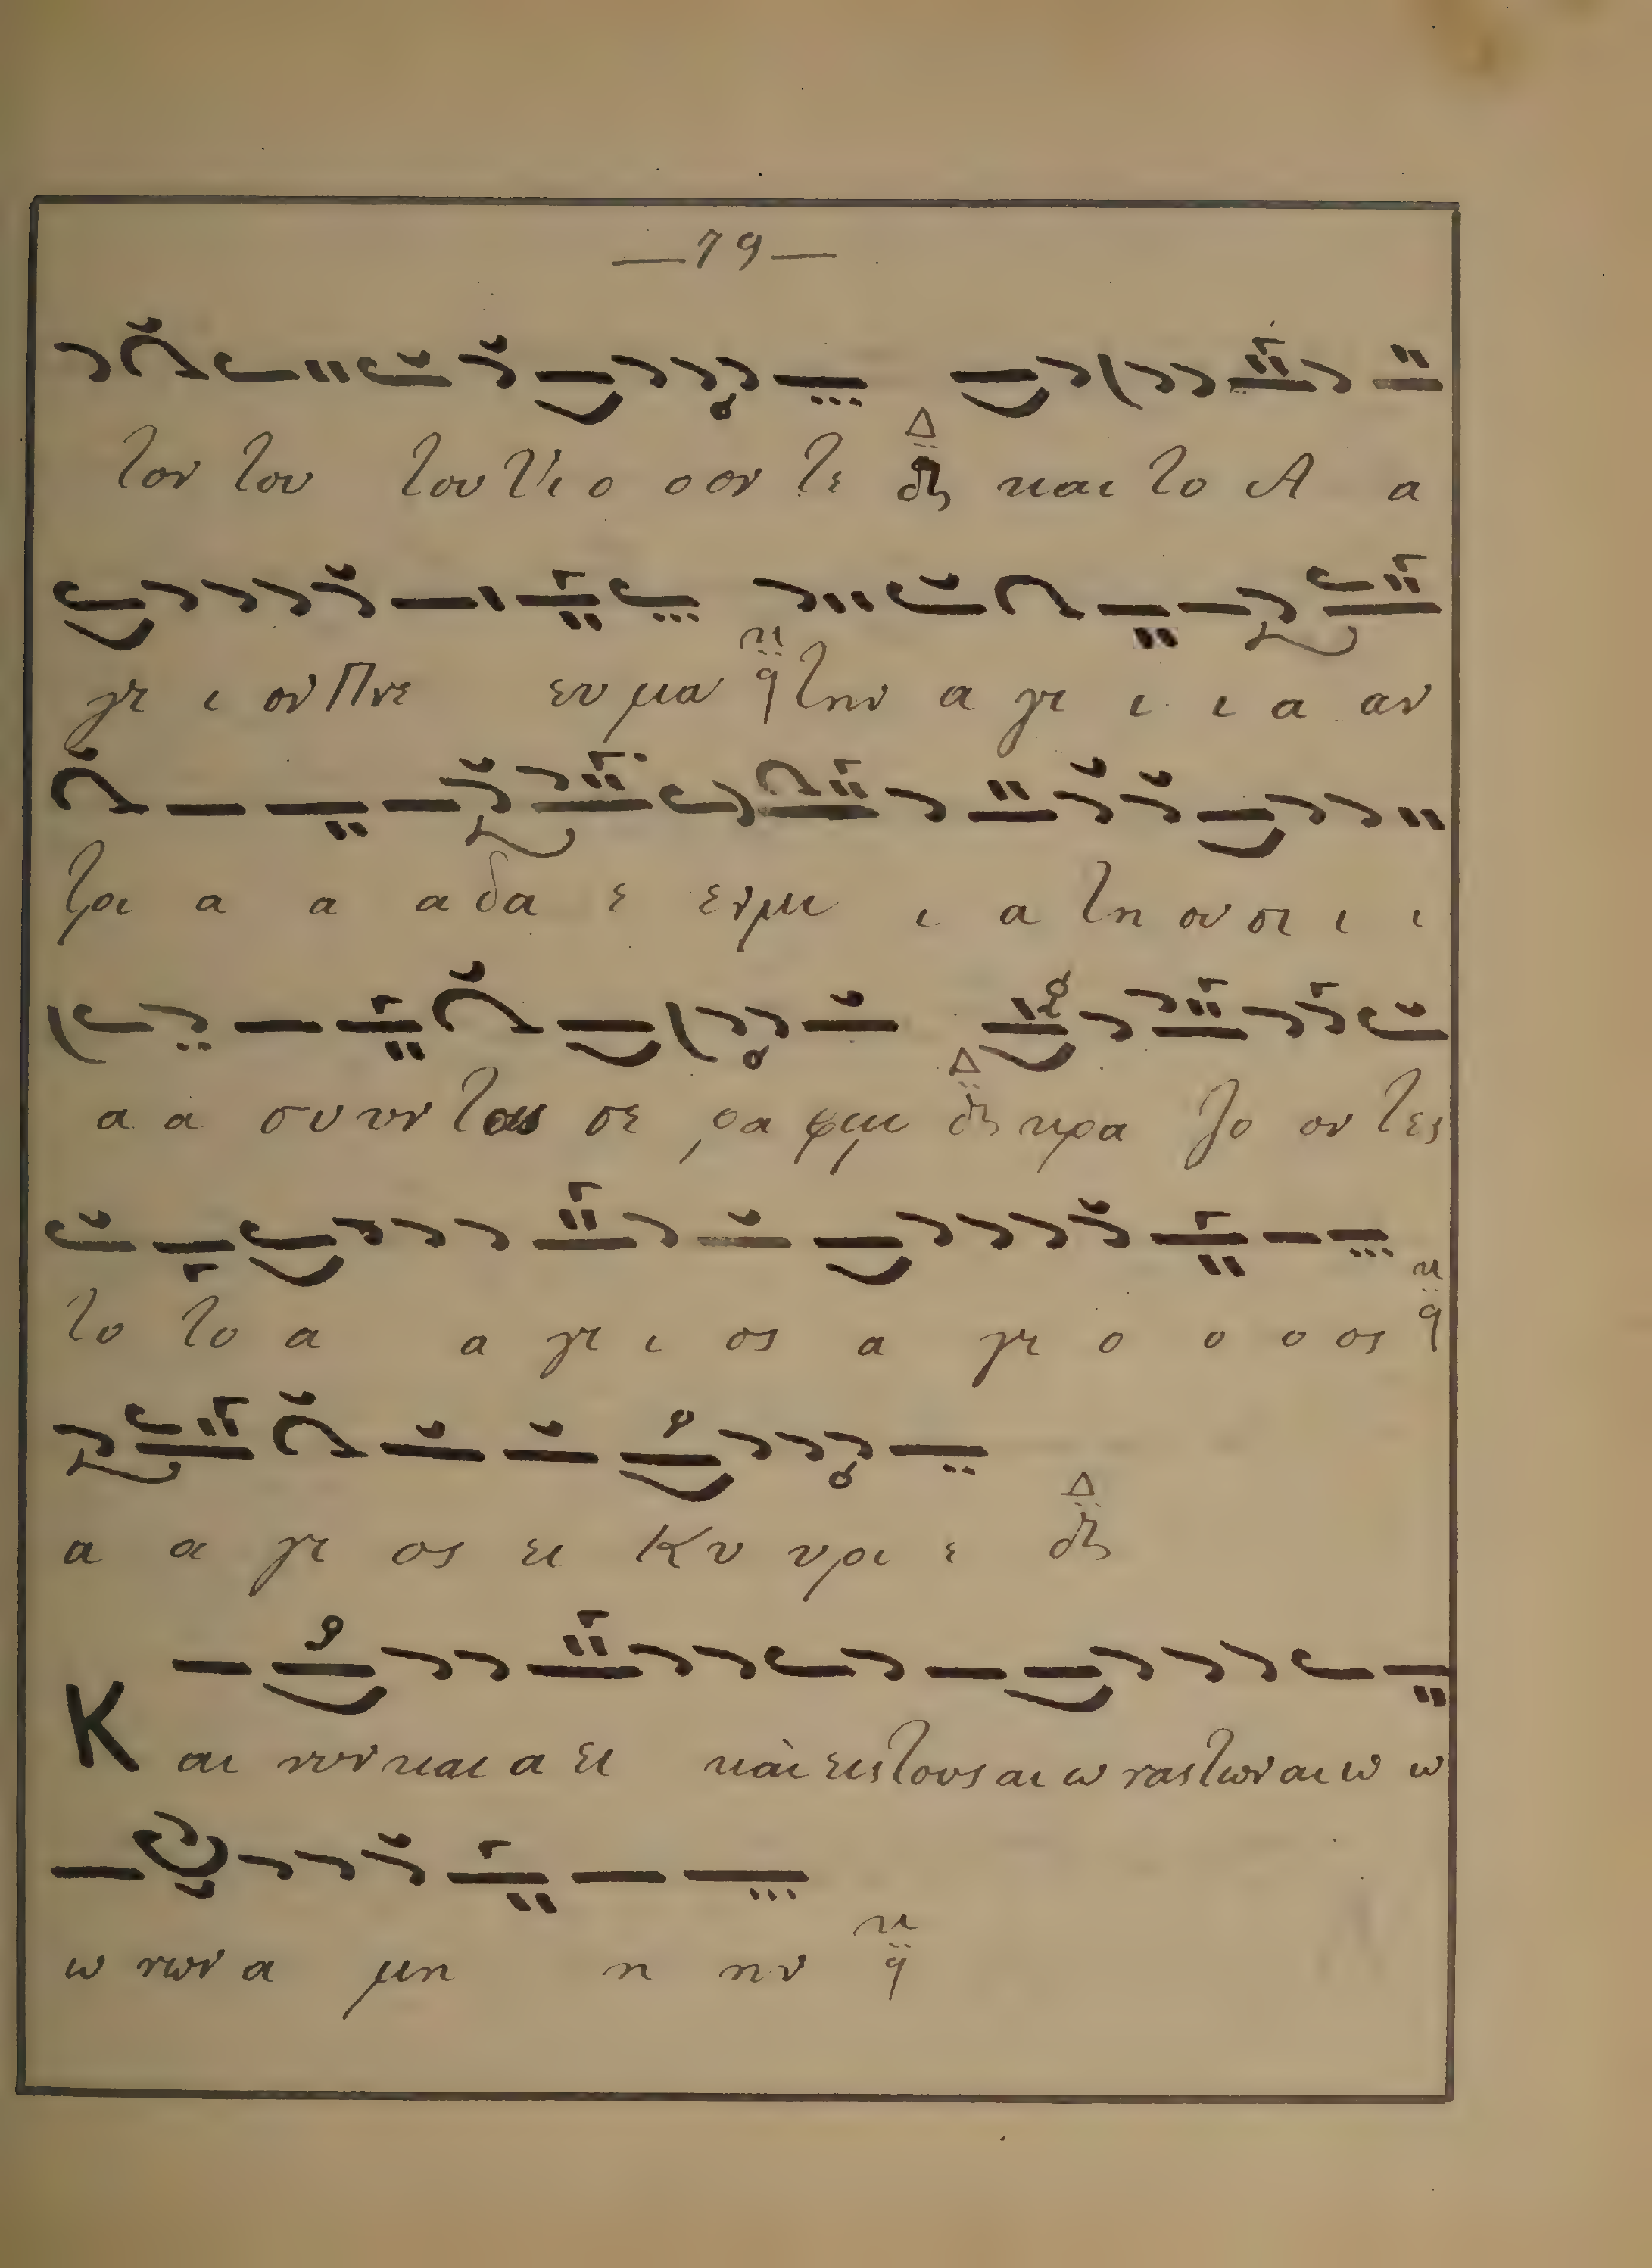 —79—
τον του του Υι ο ο ον τε Δ και το Α α
γι ι ον Πνε ευ μα π q την α γι ι ι α αν
τρι α α α δα ε εν μι ι α τη ου σι ι ι
α α συ υν τοις σε ρα φιμ Δ κρα ζο ον τες
το το α α γι ι ος α γι ο ο ο ος π q
α α γι ος ει Κυ υρι ε Δ
Και νυν και α ει και εις τους αι ω νας των αι ω ω
ω νων α μη η ην π q